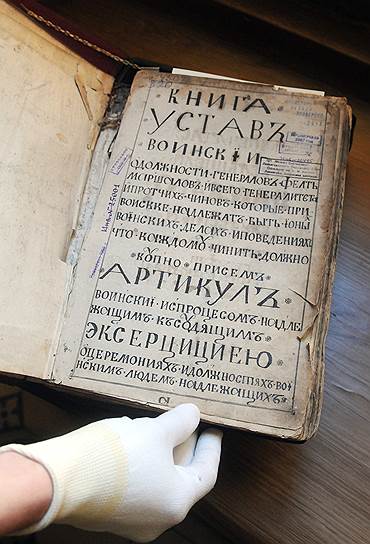 КНИГА
УСТАВЪ
ВОИНСКIИ
ОДОЛЖНОСТИ·ГЕНЕРАЛОВЪ·ФЕЛТЬ
МАРШОЛОВЪ·ИВСЕГО·ГЕНЕРАЛИТЕТА
ИПРОТЧИХЪ·ЧИНОВЪ·КОТОРЫЕ·ПРИ
ВОИСКЕ·НАДЛЕЖАТЪ·БЫТЬ
ВОИНСКИХЪ·ДЕЛОХЪ·ИПОВЕДЕНИЯХЪ
ЧТО·КАЖДОМУ·ЧИНИТЬ·ДОЛЖНО
КУПНО·ПРИСЕМЪ
АРТИКУЛЪ
ВОИНСКИI·ИСПРОЦЕСОМЪ·НАДЛЕ
ЖОЩИМЪ·КЪСУДЯЩИМЪ
ЭКСЕРЦИЦИЕЮ
ОЦЕРЕМОНИЯХЪ·ИДОЛЖНОСТЯХЪ·ВОИ
НСКИМЪ·ЛЮДЕМЪ·НАДЛЕЖАЩИХЪ